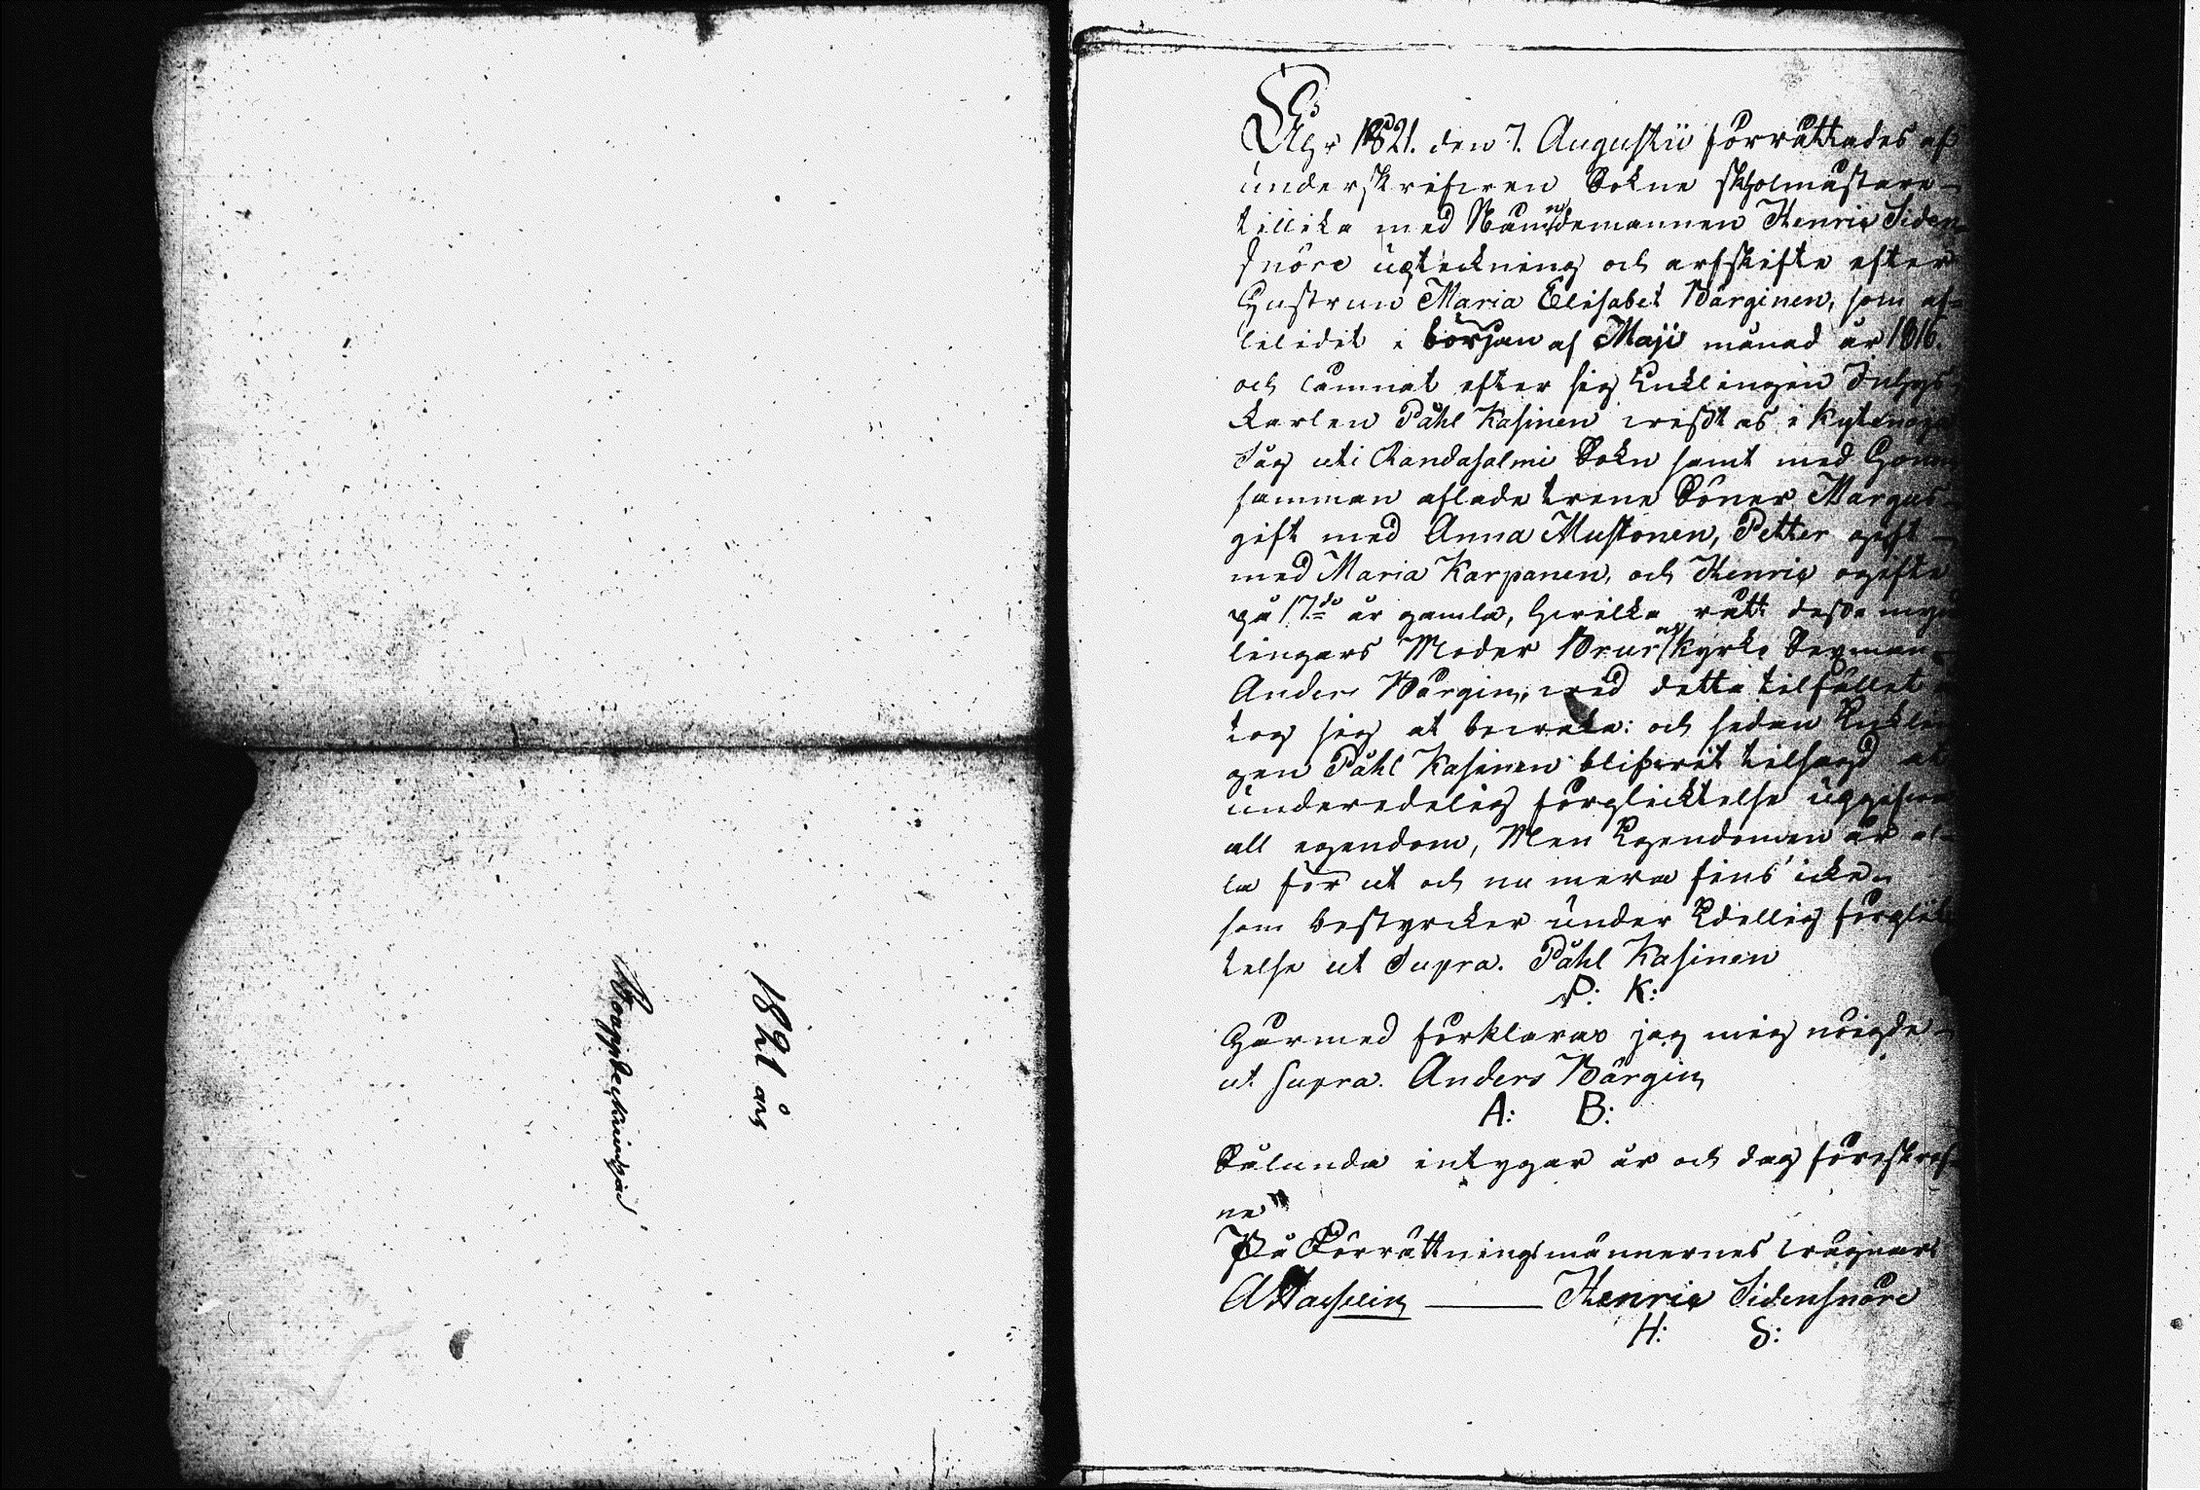 1821 års
Bouppteckningar
År 1821. den 7. Augustii förrättades af
underskrifwen Sokne skholmästare
tillika med Nämndemannen Henric Siden
snöre upteckning och arfskifte efter
Hustrun Maria Elisabet Bärginen, som af
lelidet i början af Maji månad år 1816.
och lämnat efter sig Enklingen Inhys
karlen Påhl Kasinen wistas i
Såg uti Randasalmi Sokn samt med
samman aflade trene Söner Margus
gift med Anna Mustonen, Petter gift
med Maria Karpanen, och Henric ogifte
på 17:de år gamla, hwilka rätt desse myn
lingars Moder Brur Kyrko Sexman
Anders Bärgin, wid detta tilfället
tog sig at bewaka: och sedan Enklin
gen Påhl Kasinen blifwit tilsagd at
under edelig förplicktelse uppgifwa
all egendom, Men Egendomen är al
la för ut och nu mera fins icke
som bestyrcker under Edellig förplik
telse ut Supra. Påhl Kasinen
P: K:
Härmed förklarar jag mig nöigde
ut supra. Anders Bärgin
A: B:
Sålunda intygar år och dag föreskrif
ne
På Förrättningsmännernes wägnar
A Hasselin Henric Sidensnöre
H: S: